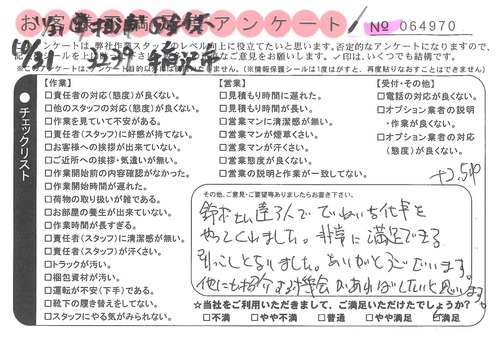 お客様 アンケート
No 064970
アンケートは、弊社作業スタッフのレベル向上に役立てたいと思います。否定的なアンケートになりますので、
ご意見をお願いします。✓印は、いくつでも結構です。
※このアンケート
(※情報保護シールは1度はがすと、再度貼りなおすことはできません)
10/31
チェックリスト
【作業】
□責任者の対応(態度)が良くない。
□他のスタッフの対応(態度)が良くない。
□作業を見ていて不安がある。
□責任者(スタッフ)に好感が持てない。
□お客様への挨拶が出来ていない。
□ご近所への挨拶・気遣いが無い。
□作業開始前の内容確認がなかった。
□作業開始時間が遅れた。
□荷物の取り扱いが雑である。
□お部屋の養生が出来ていない。
□作業時間が長すぎる。
□責任者(スタッフ)に清潔感が無い。
□責任者(スタッフ)が汗くさい。
□トラックが汚い。
□梱包資材が汚い。
□運転が不安(下手)である。
□靴下の履き替えをしてない。
□スタッフにやる気がみられない。
【営業】
□見積もり時間に遅れた。
□見積もり時間が長い。
□営業マンに清潔感が無い。
□営業マンが煙草くさい。
□営業マンが汗くさい。
□営業態度が良くない。
□営業の説明と作業が一致してない。
【受付・その他】
□電話の対応が良くない。
□オプション業者の説明
・作業が良くない。
□オプション業者の対応
(態度)が良くない。
その他、ご意見・ご要望等ありましたらお書き下さい。
鈴木さん達3人で ていねいな仕事を
やってくれました。非常に満足できる
引っこしとなりました。ありがとうございます。
他にも紹介する機会があればしたいと思います。
☆当社をご利用いただきまして、ご満足いただけたでしょうか?
□不満 □やや不満 □普通 □やや満足 ☑満足